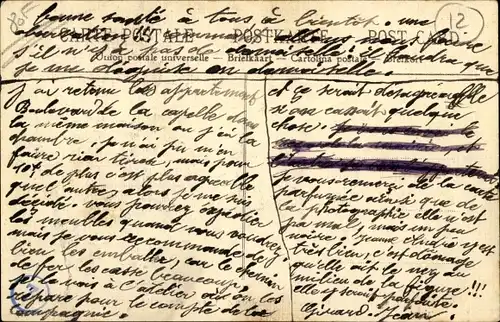 80F
12
bonne santé à tous à bientôt. une
CARTE POSTALE POSTKARTE POST CARD
s'il n'y a pas de demoiselle: il faudra que
Union postale universelle – Briefkaart – Cartolina postale – Brefkort
je me déguise en demoiselle.
j'ai retenu les appartements
Boulevard de la capelle dans
la même maison ou j'ai la
chambre, je n'ai pu m'en
faire rien tirer, mais pour
10f de plus c'est plus
quel autre, alors je me suis
décidé. vous pouvez expédier
les meubles quand vous voudrez,
mais je vous recommande de
bien les emballer, car le chemin
de fer les casse beaucoup,
je vais à l'atelier où on les
répare pour le compte de la
Compagnie.
et ça serait désagréable
si ça cassait quelque
chose.
je vous remerci de la carte
parfumée ainsi que de
la photographie elle n'est
pas mal, mais un peu
noire, Jeanne y est
très bien, c'est domage
qu'elle ait le nez au
milieu de la figure!!!
elle serait parfaite.
Girard Jean